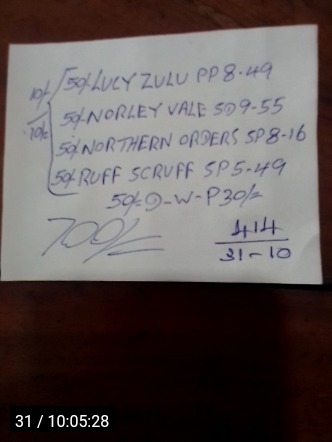 10/- 50/- LUCY ZULU PP 8-49
70/- 50/- NORLEY VALE SD 9-55
50/- NORTHERN ORDERS SP 8-16
50/- RUFF SCRUFF SP 5-49
50/= D-W-P 30/=
700/=
414
31-10
31 / 10:05:28